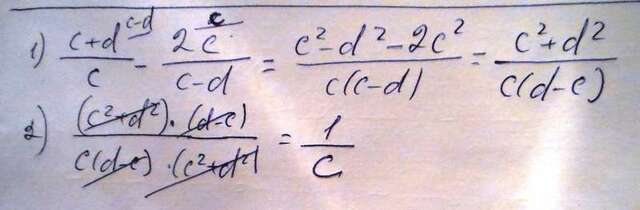 1) (c+d)/c ^(c-d) - 2c/(c-d) ^c = (c²-d²-2c²)/(c(c-d)) = (c²+d²)/(c(d-c))
2) ((c²+d²)·(d-c))/(c(d-c)·(c²+d²)) = 1/c